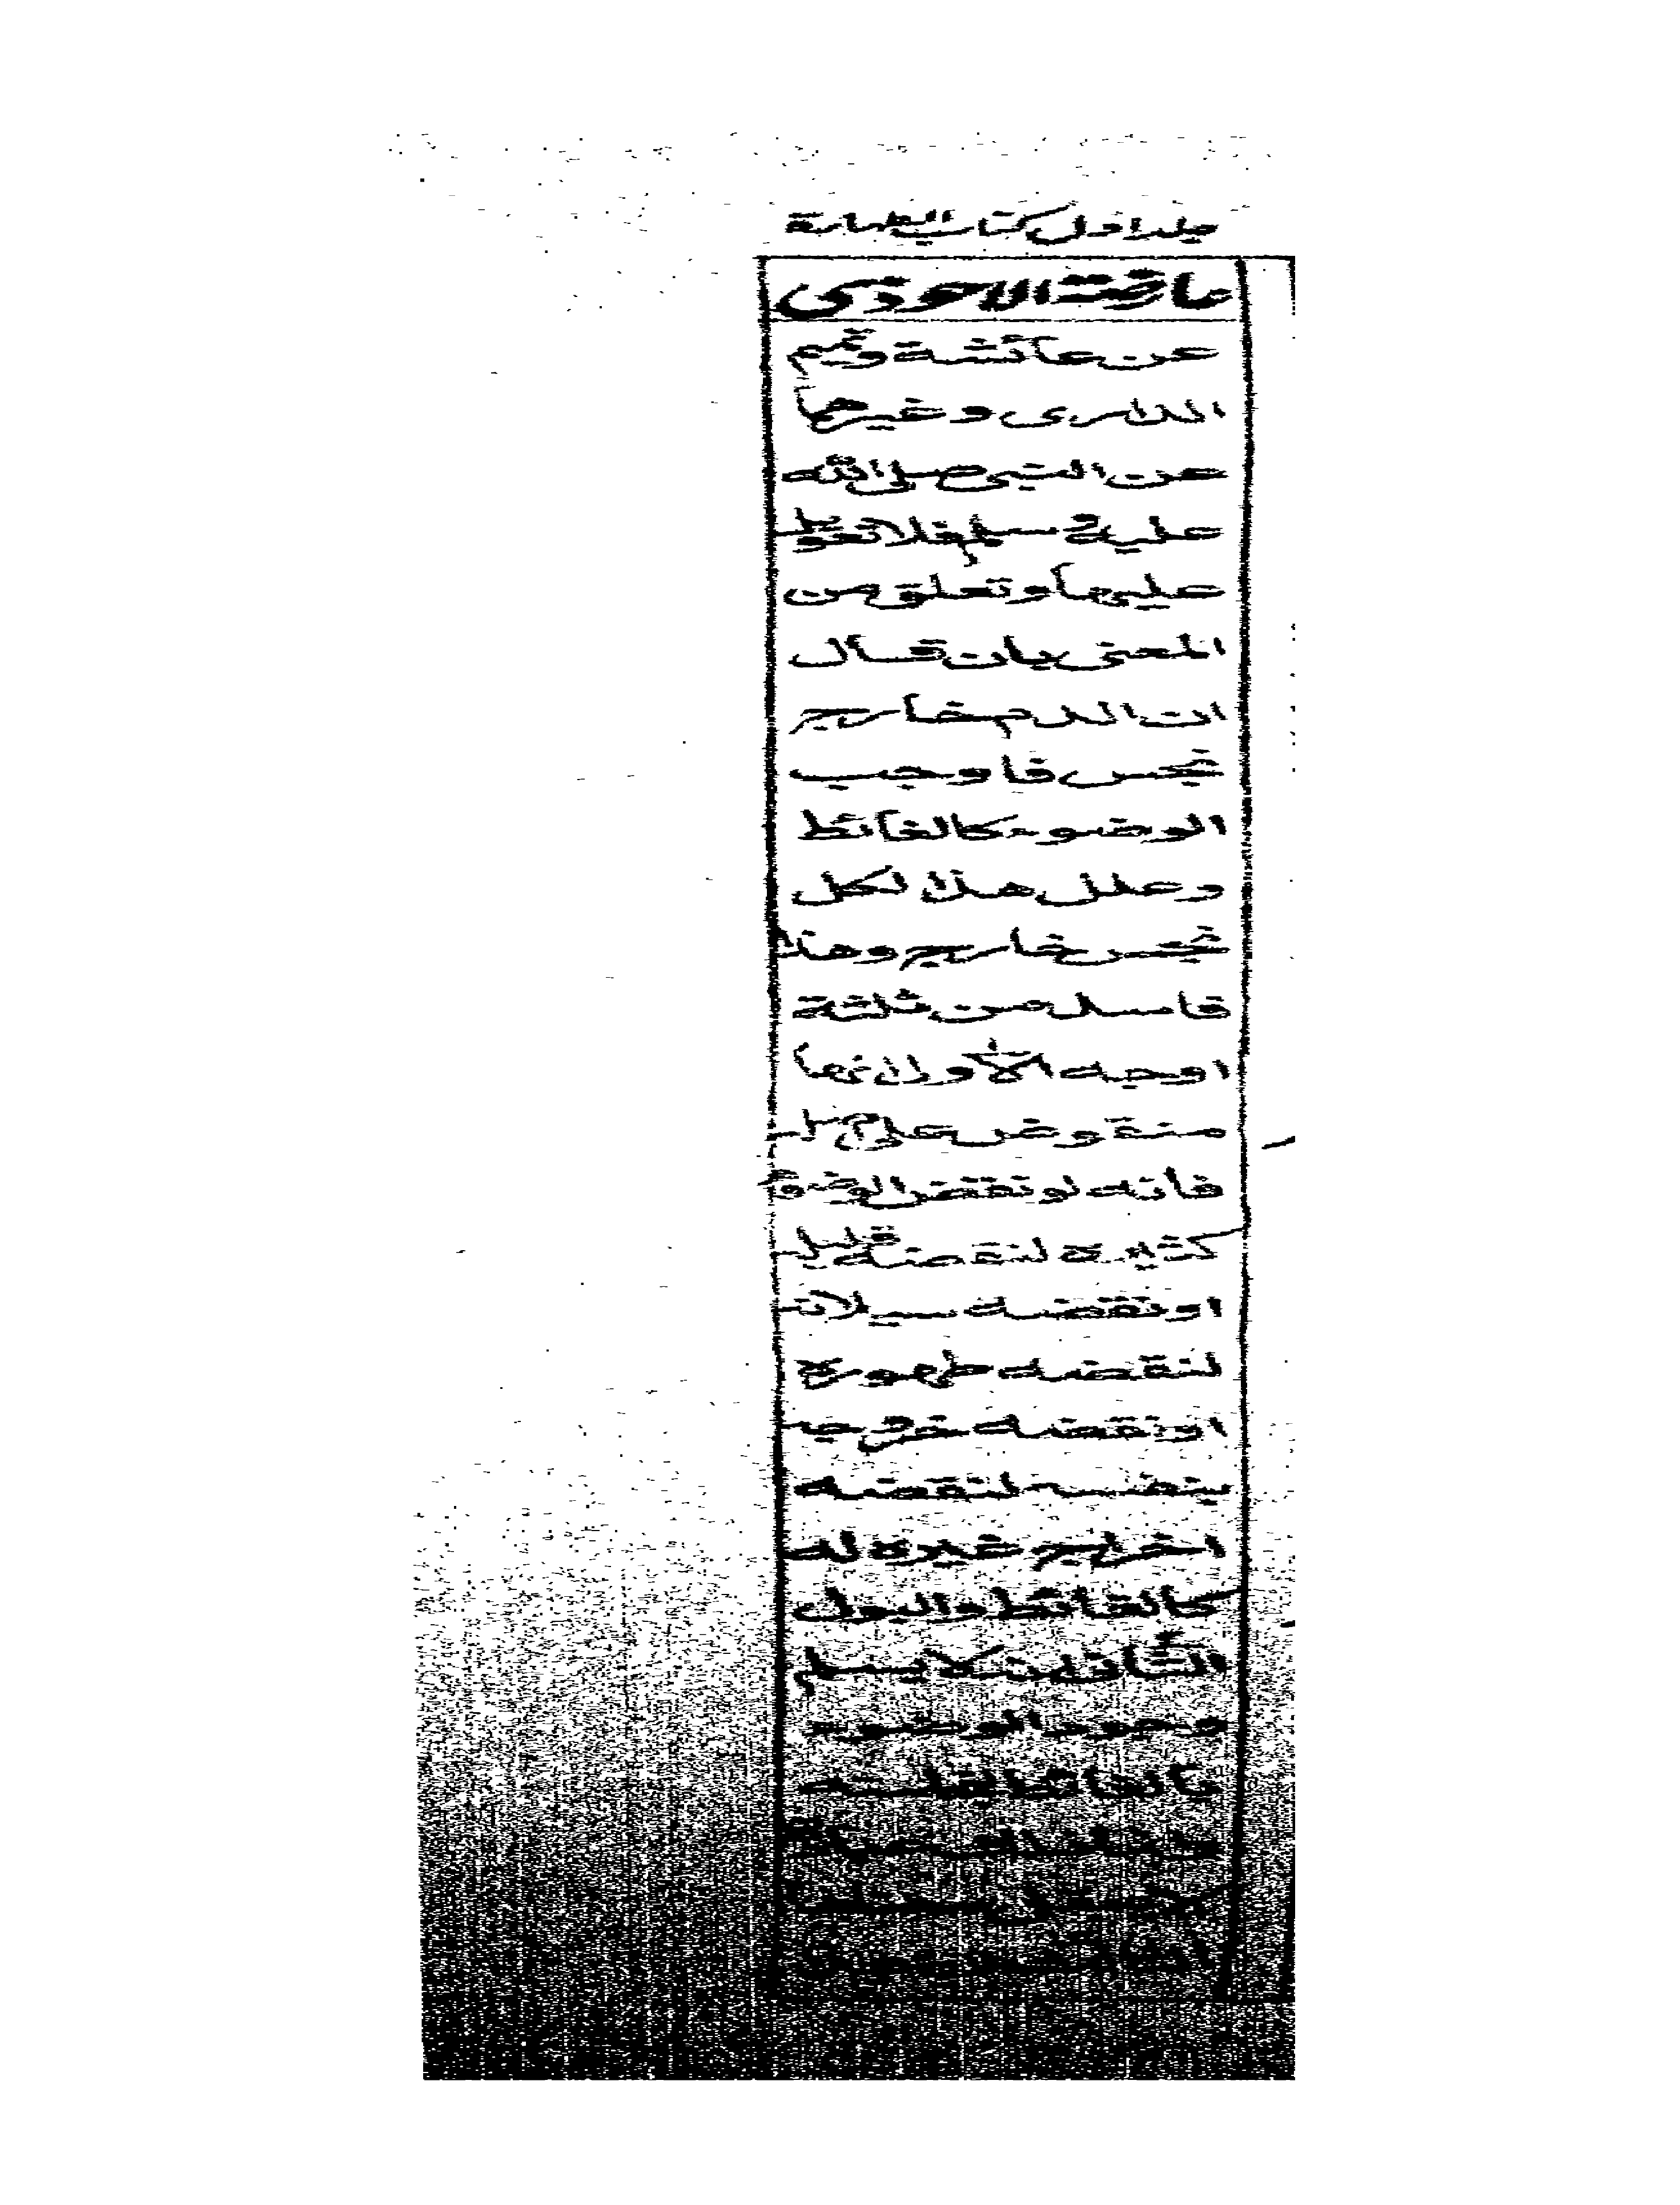 جلد اول كتاب الطهارة
عارضة الاحوذى
عن عائشة وتميم
الدارى وغيرهما
عن النبى صلى الله
عليه وسلم فلا تعول
عليها وتعلق من
المعنى بان قال
ان الدم خارج
نجس فاوجب
الوضوء كالغائط
وعلل هذا لكل
نجس خارج وهذا
فاسد من ثلثة
اوجه الأول انها
منقوض على
فانه لو نقض الوضوء
كثيره لنقضه قليله
او نقضه سيلانه
لنقضه ظهوره
او نقضه خروجه
بنفسه لنقضه
اخراج غيره له
كالغائط والبول
الثانى لا يسلم
الوضوء